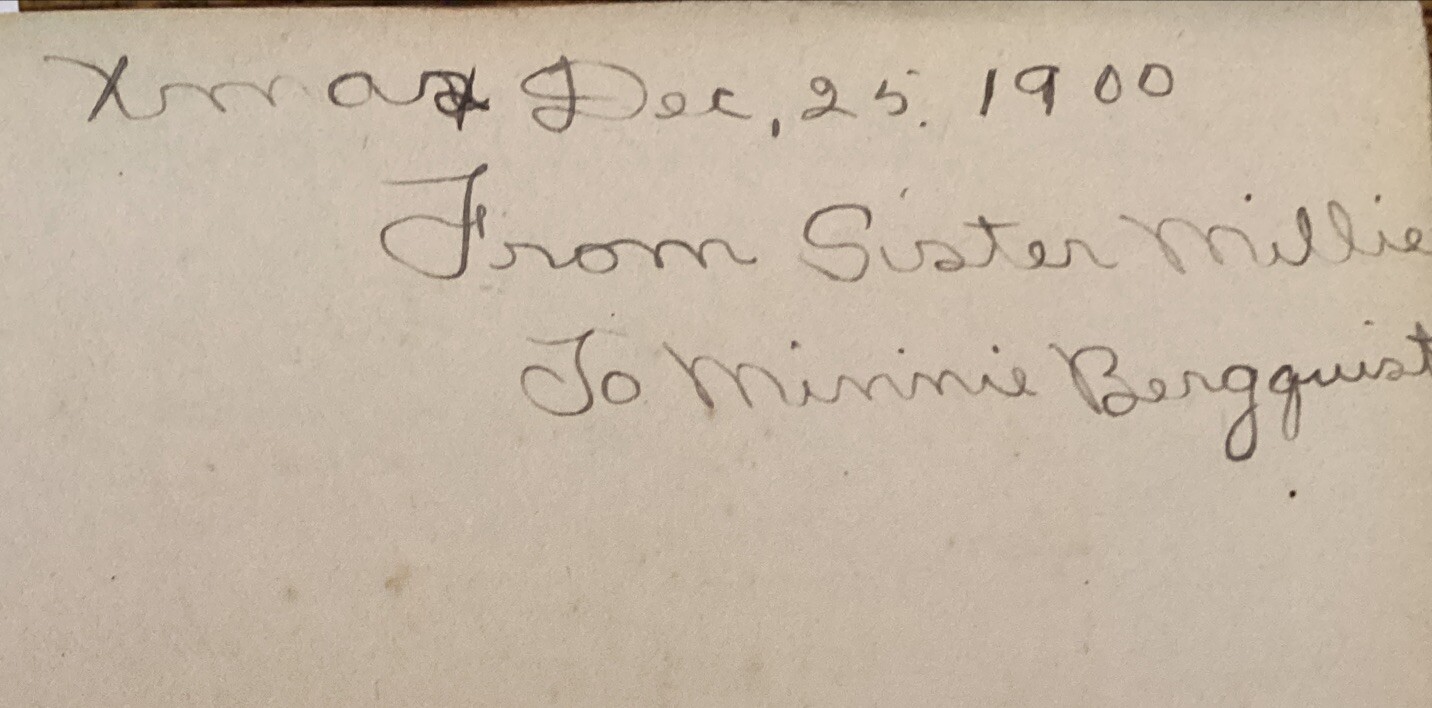 Xmas Dec, 25. 1900
From Sister Millie
To Minnie Bergquist